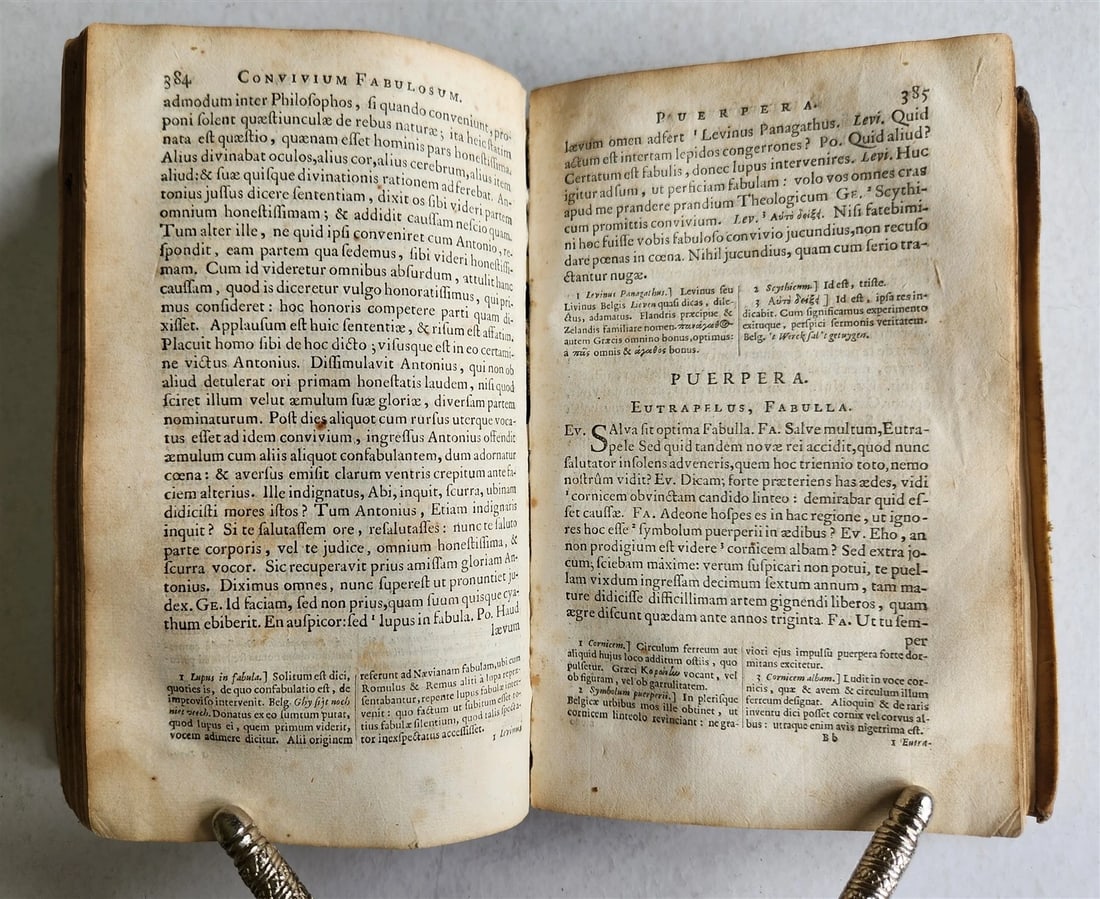 384 CONVIVIUM FABULOSUM.
admodum inter Philoſophos, ſi quando conveniunt, pro-
poni ſolent quæſtiunculæ de rebus naturæ; ita heic ſtatim
nata eſt quæſtio, quænam eſſet hominis pars honeſtiſſima.
Alius divinabat oculos, alius cor, alius cerebrum, alius item
aliud: & ſuæ quiſque divinationis rationem adferebat. An-
tonius juſſus dicere ſententiam, dixit os ſibi videri partem
omnium honeſtiſſimam; & addidit cauſſam neſcio quam.
Tum alter ille, ne quid ipſi conveniret cum Antonio, re-
ſpondit, eam partem qua ſedemus, ſibi videri honeſtiſſi-
mam. Cum id videretur omnibus abſurdum, attulit hanc
cauſſam, quod is diceretur vulgo honoratiſſimus, qui pri-
mus conſideret: hoc honoris competere parti quam di-
xiſſet. Applauſum eſt huic ſententiæ, & riſum eſt affatim.
Placuit homo ſibi de hoc dicto; viſusque eſt in eo certami-
ne victus Antonius. Diſſimulavit Antonius, qui non ob
aliud detulerat ori primam honeſtatis laudem, niſi quod
ſciret illum velut æmulum ſuæ gloriæ, diverſam partem
nominaturum. Poſt dies aliquot cum rurſus uterque voca-
tus eſſet ad idem convivium, ingreſſus Antonius offendit
æmulum cum aliis aliquot confabulantem, dum adornatur
cœna: & averſus emiſit clarum ventris crepitum ante fa-
ciem alterius. Ille indignatus, Abi, inquit, ſcurra, ubinam
didiciſti mores iſtos? Tum Antonius, Etiam indignaris
inquit? Si te ſalutaſſem ore, reſalutaſſes: nunc te ſaluto
parte corporis, vel te judice, omnium honeſtiſſima, &
ſcurra vocor. Sic recuperavit prius amiſſam gloriam An-
tonius. Diximus omnes, nunc ſupereſt ut pronuntiet ju-
dex. GE. Id faciam, ſed non prius, quam ſuum quisque cya-
thum ebiberit. En auſpicor: ſed ¹ lupus in fabula. Po. Haud
lævum
1 Lupus in fabula.] Solitum eſt dici,
quoties is, de quo confabulatio eſt, de
improviſo intervenit. Belg. Ghy ſijt noch
niet verch. Donatus ex eo ſumtum putat,
quod lupus ei, quem primum viderit,
vocem adimere dicitur. Alii originem
referunt ad Nævianam fabulam, ubi cum
Romulus & Remus aliti à lupa repræ-
ſentabantur, repente lupus fabulæ inter-
venit: quo factum ut ſubitum eſſet to-
tius fabulæ ſilentium, quod talis ſpecta-
tor inexſpectatus acceſſiſſet.
1 Levinus
PUERPERA. 385
lævum omen adfert ¹ Levinus Panagathus. Levi. Quid
actum eſt intertam lepidos congerrones? Po. Quid aliud?
Certatum eſt fabulis, donec lupus intervenires. Levi. Huc
igitur adſum, ut perficiam fabulam: volo vos omnes cras
apud me prandere prandium Theologicum GE. ² Scythi-
cum promittis convivium. Lev. ³ Αὐτὸ δείξει. Niſi fatebimi-
ni hoc fuiſſe vobis fabuloſo convivio jucundius, non recuſo
dare pœnas in cœna. Nihil jucundius, quam cum ſerio tra-
ctantur nugæ.
1 Levinus Panagathus.] Levinus ſeu
Livinus Belgis Lieven quaſi dicas, dile-
ctus, adamatus. Flandris præcipue &
Zelandis familiare nomen. πανάγαθος
autem Græcis omnino bonus, optimus:
à πᾶς omnis & ἀγαθὸς bonus.
2 Scythicum.] Id eſt, triſte.
3 Αὐτὸ δείξει] Id eſt, ipſa res in-
dicabit. Cum ſignificamus experimento
exituque, perſpici ſermonis veritatem.
Belg. 't Werck ſal 't getuygen.
PUERPERA.
EUTRAPELUS, FABULLA.
EV. SAlva ſit optima Fabulla. FA. Salve multum, Eutra-
pele Sed quid tandem novæ rei accidit, quod nunc
ſalutator inſolens adveneris, quem hoc triennio toto, nemo
noſtrûm vidit? EV. Dicam; forte præteriens has ædes, vidi
¹ cornicem obvinctam candido linteo: demirabar quid eſ-
ſet cauſſæ. FA. Adeone hoſpes es in hac regione, ut igno-
res hoc eſſe ² ſymbolum puerperii in ædibus? EV. Eho, an
non prodigium eſt videre ³ cornicem albam? Sed extra jo-
cum; ſciebam maxime: verum ſuſpicari non potui, te puel-
lam vixdum ingreſſam decimum ſextum annum, tam ma-
ture didiciſſe difficillimam artem gignendi liberos, quam
ægre diſcunt quædam ante annos triginta. FA. Ut tu ſem-
per
1 Cornicem.] Circulum ferreum aut
aliquid hujus loco additum oſtiis, quo
pulſetur. Græci Κορώνην vocant, vel
ob figuram, vel ob garrulitatem.
2 Symbolum puerperii.] In pleriſque
Belgicæ urbibus mos ille obtinet, ut
cornicem linteolo revinciant: ne gra-
vioti ejus impulſu puerpera forte dor-
mitans excitetur.
3 Cornicem albam.] Ludit in voce cor-
nicis, quæ & avem & circulum illum
ferreum deſignat. Alioquin & de raris
inventu dici poſſet cornix vel corvus al-
bus: utraque enim avis nigerrima eſt.
Bb
1 Eutra-